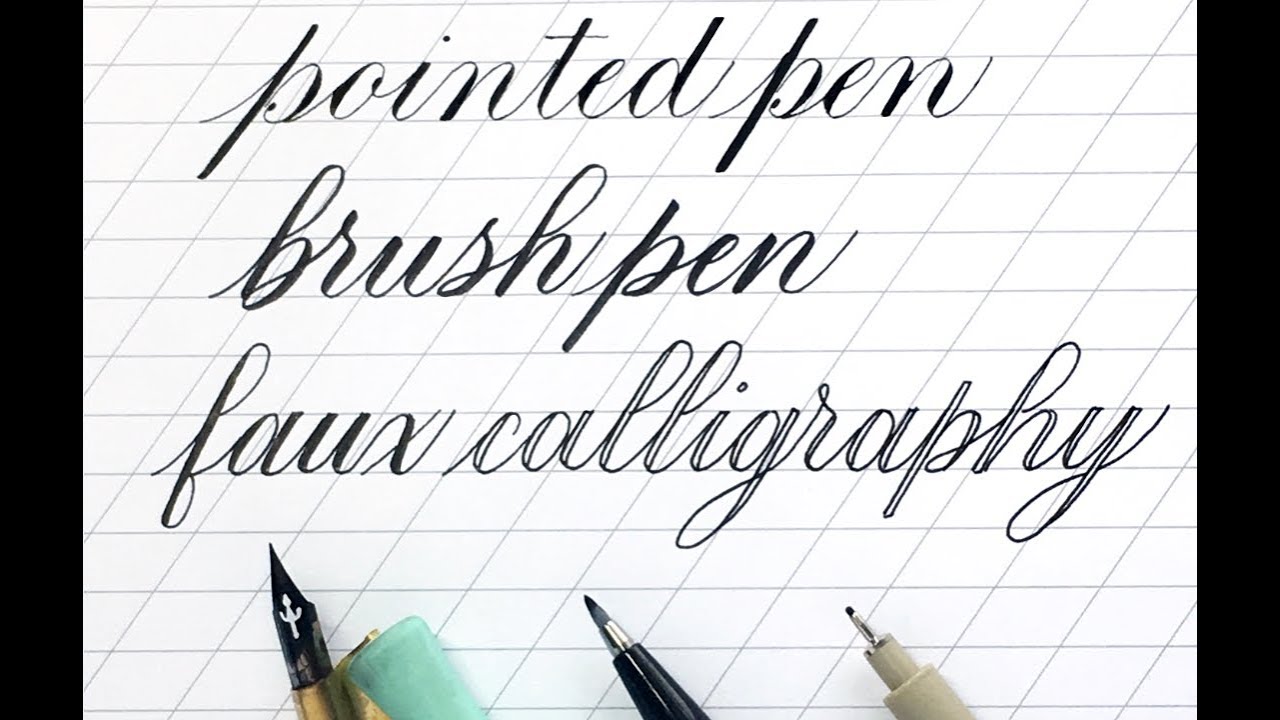 pointed pen
brush pen
faux calligraphy